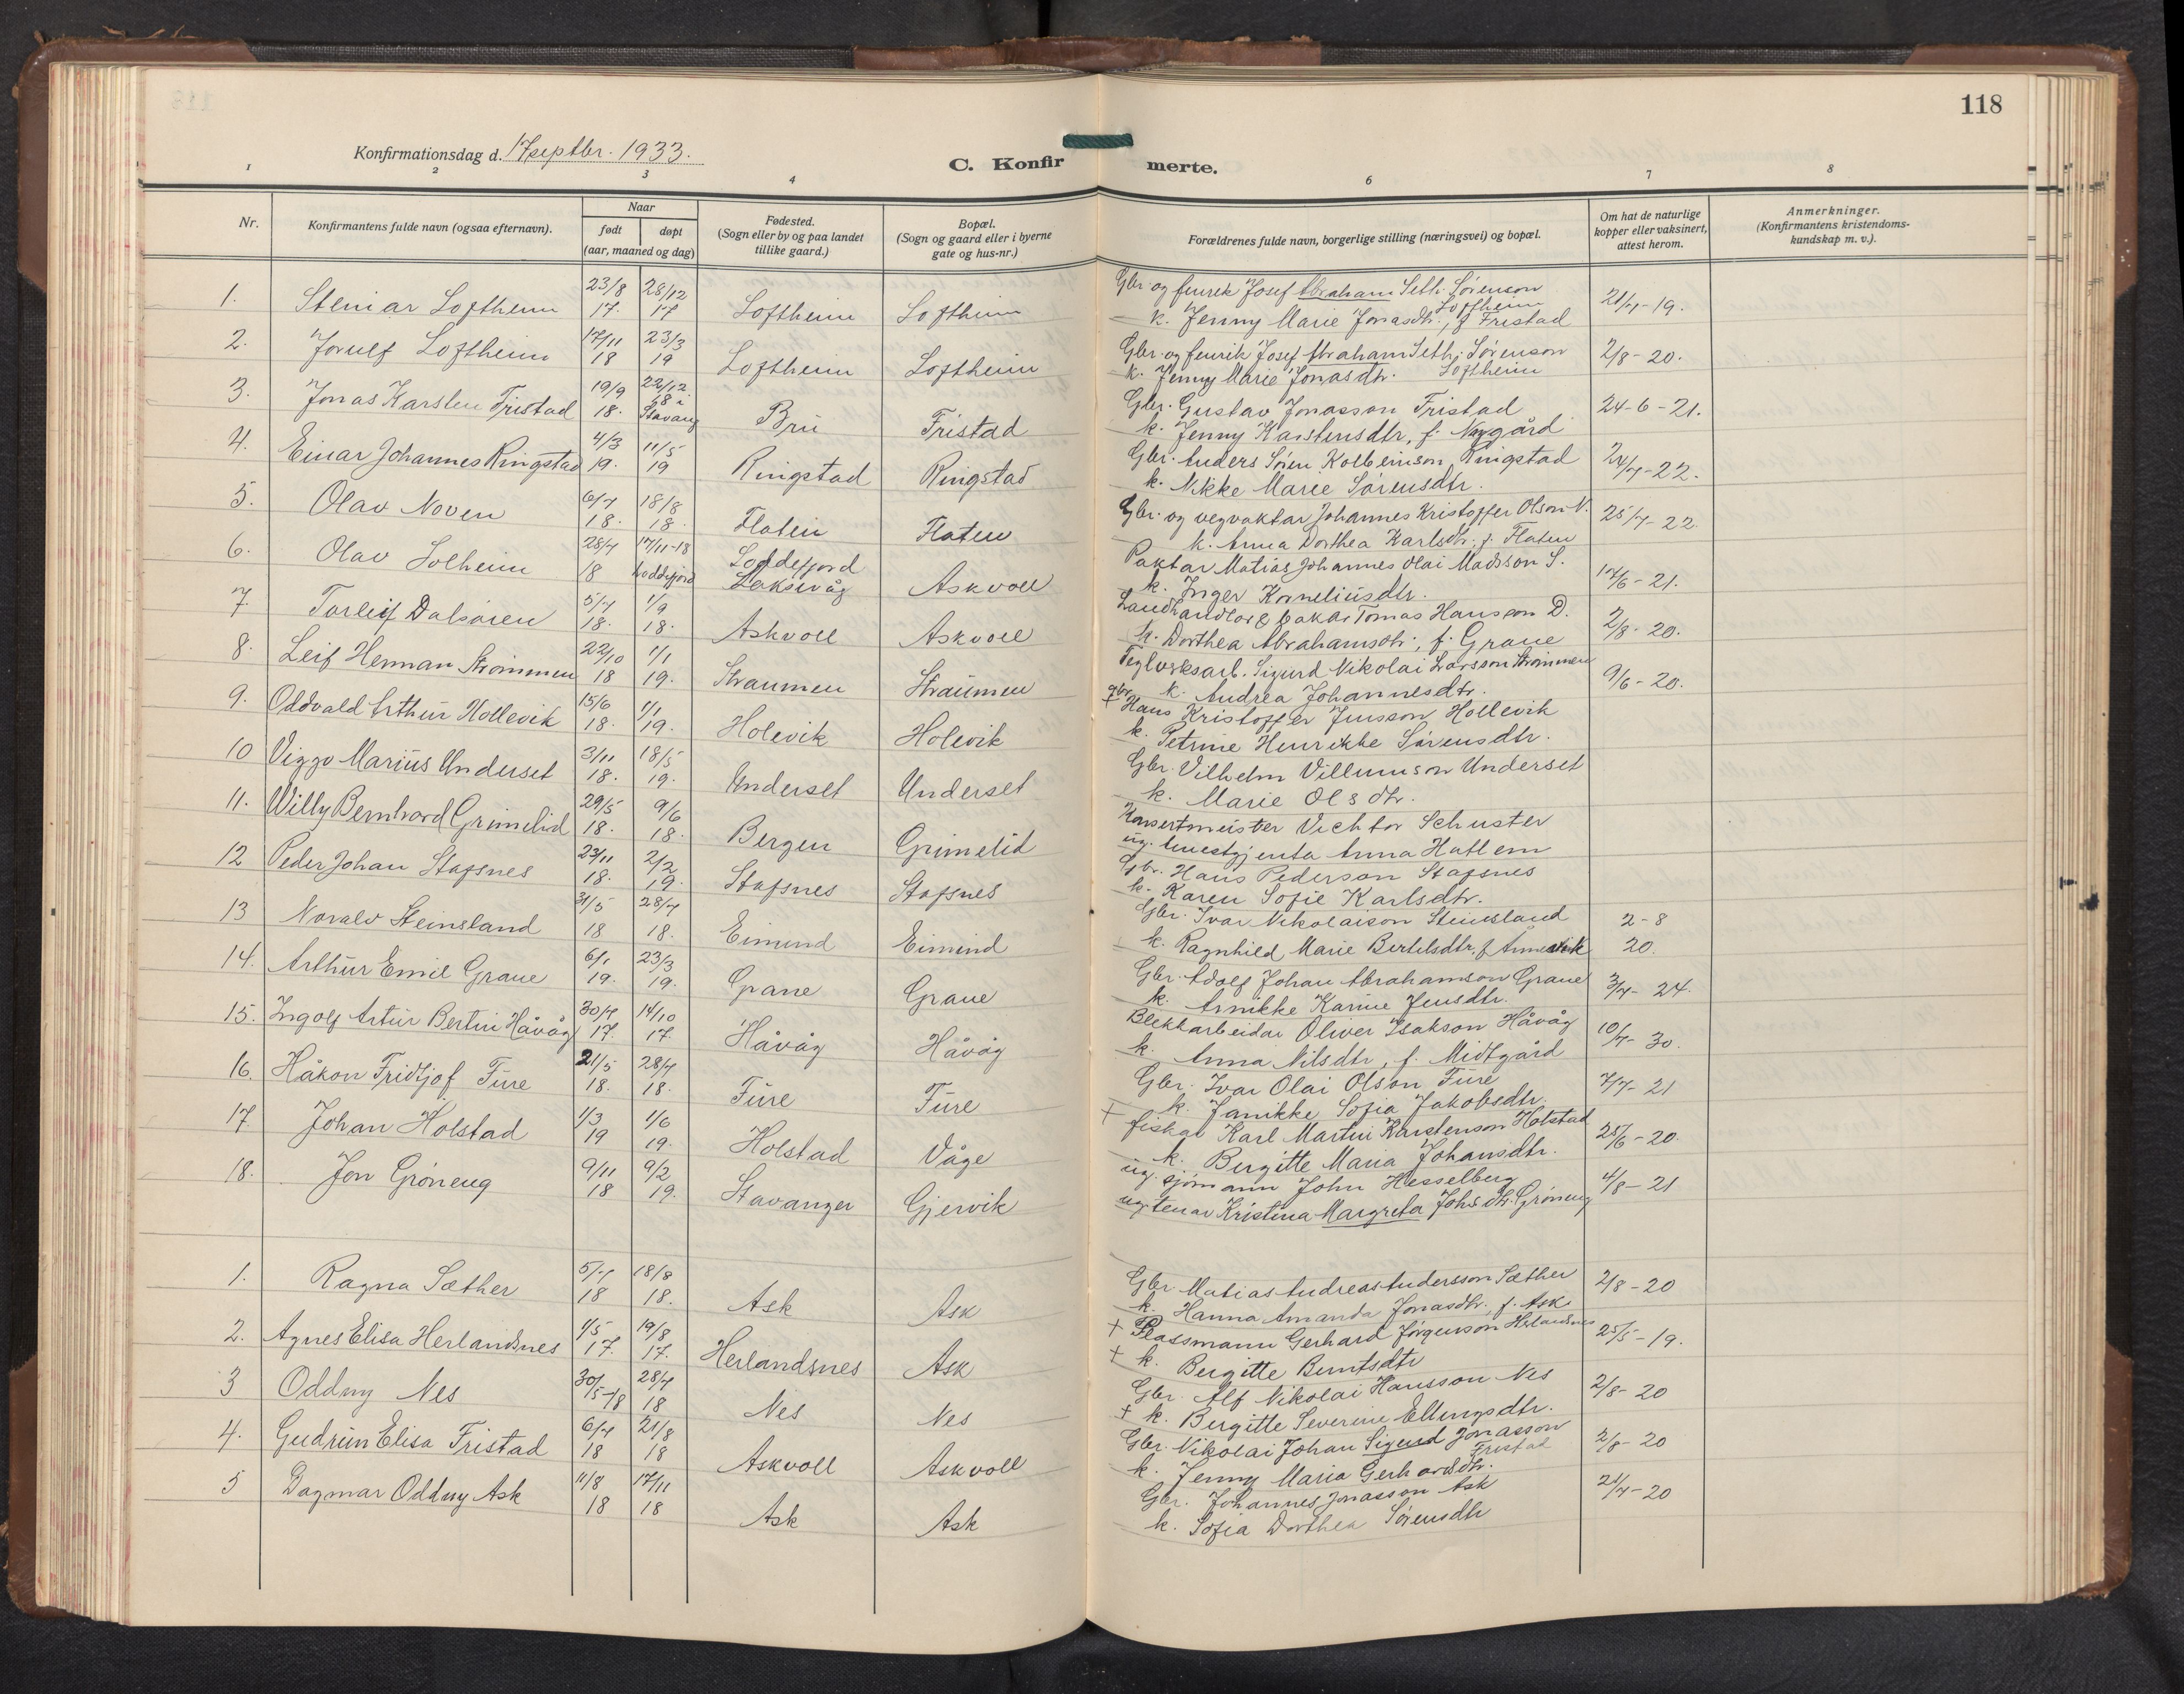 118
Konfirmationsdag d. 17 septbr. 1933.
C. Konfirmerte.
1 2 3 4 6 7 8
Nr.
Konfirmantens fulde navn (ogsaa efternavn).
Naar
født døpt
(aar, maaned og dag)
Fødested.
(Sogn eller by og paa landet
tillike gaard.)
Bopæl.
(Sogn og gaard eller i byerne
gate og hus-nr.)
Forældrenes fulde navn, borgerlige stilling (næringsvei) og bopæl.
Om hat de naturlige
kopper eller vaksinert,
attest herom.
Anmerkninger.
(Konfirmantens kristendoms-
kundskap m. v.).
1. Steinar Loftheim 23/8 17. 28/12 17 Loftheim Loftheim
Gbr og fenrik Josef Abraham Seth. Sørenson Loftheim
k. Jenny Marie Jonasdtr., f Fristad
21/7-19.
2. Jorulf Loftheim 17/11 18 23/3 19 Loftheim Loftheim
Gbr. og fenrik Josef Abraham Seth. Sørenson
k. Jenny Marie Jonasdtr. Loftheim
2/8-20.
3. Jonas Karsten Fristad 19/9 18. 22/12 18 i Stavang Bru Fristad
Gbr. Gustav Jonasson Fristad
k. Jenny Karstensdtr, f. Nygård
24-6-21.
4. Einar Johannes Ringstad 4/3 19. 11/5 19 Ringstad Ringstad
Gbr. Anders Søren Kolbeinson Ringstad
k. Nikke Marie Sørensdtr.
24/7-22.
5. Olav Noven 6/7 18. 18/8 18. Flaten Flaten
Gbr. og vegvaktar Johannes Kristoffer Olson N.
k. Anna Dorthea Karlsdtr. f. Flaten
25/7-22.
6. Olav Solheim 28/7 18 17/11-18 Loddefjord Loddefjord Laksevåg Askvoll
Paktar Matias Johannes Olai Madsson S.
k. Inger Korneliusdtr.
14/6-21.
7. Torleif Dalsøren 5/7 18. 1/9 18. Askvoll Askvoll
Landhandlar & bakar Tomas Hansson D.
k. Dorthea Abrahamsdtr., f. Grane
2/8-20.
8. Leif Herman Strømmen 22/10 18 1/1 19. Straumen Straumen
Teglverksarb. Sigurd Nikolai Larsson Strømmen
k. Andrea Johannesdtr.
9/6-20.
9. Oddvald Arthur Hollevik 15/6 18. 1/1 19. Holevik Holevik
+ gbr. Hans Kristoffer Jensson Hollevik
k. Petrine Henrikke Sørensdtr.
10 Viggo Marius Underset 3/11 18. 18/5 19. Underset Underset
Gbr. Vilhelm Villumson Underset
k. Marie Olsdtr.
11. Willy Bernhard Grimelid 29/5 18. 9/6 18. Bergen Grimelid
Konsertmeister Vichtor Schuster
ug. tenestgjenta Anna Hatlem
12 Peder Johan Stafsnes 23/11 18. 2/2 19. Stafsnes Stafsnes
Gbr. Hans Pederson Stafsnes
k. Karen Sofie Karlsdtr.
13 Noralv Steinsland 31/5 18 28/7 18. Eimind Eimind
Gbr. Ivar Nikolaison Steinsland
k. Ragnhild Marie Bertelsdtr. f
2-8
20.
14. Arthur Emil Grane 6/1 19. 23/3 19. Grane Grane
Gbr. Adolf Johan Abrahamson Grane
k. Annikke Karine Jensdtr.
3/7-24.
15. Ingolf Artur Bertin Håvåg 30/7 17. 14/10 17. Håvåg Håvåg
Blekkarbeidar Oliver Isakson Håvåg
k. Anna Nilsdtr, f. Midtgård
10/7-30.
16. Håkon Fridtjof Fure 21/5 18. 28/7 18. Fure Fure
Gbr. Ivar Olai Olson Fure
k. Janikke Sofia Jakobsdtr.
7/7-21
17. Johan Holstad 1/3 19 1/6 19. Holstad Våge
+ fiskar Karl Martin Karstenson Holstad
k. Bergitte Maria Johansdtr.
25/6-20.
18. Jon Grøneng 9/11 18 9/2 19. Stavanger Gjervik
ug. sjømann John Hesselberg
ug. tenar Kristina Margreta Johs dtr. Grøneng
4/8-21
1. Ragna Sæther 5/7 18 18/8 18. Ask Ask
Gbr. Matias Andreas Andersson Sæther
k. Hanna Amanda Jonasdtr., f. Ask
2/8-20
2. Agnes Elisa Herlandsnes 1/5 17. 19/8 17. Herlandsnes Ask
+ Plassmann Gerhard Jørgenson Herlandsnes
+ k. Bergitte Berntsdtr
25/5-19.
3 Oddny Nes 30/5-18 28/7 18 Nes Nes
Gbr. Alf Nikolai Hansson Nes
+ k. Bergitte Severine Ellingsdtr.
2/8-20
4. Gudrun Elisa Fristad 6/7 18 21/8 18 Askvoll Askvoll
Gbr. Nikolai Johan Sigurd Jonasson Fristad
k. Jenny Maria Gerhardsdtr.
2/8-20
5 Dagmar Oddny Ask 11/8 18 17/11 18 Ask Ask
Gbr. Johannes Jonasson Ask
k. Sofia Dorthea Sørensdtr
21/7-20